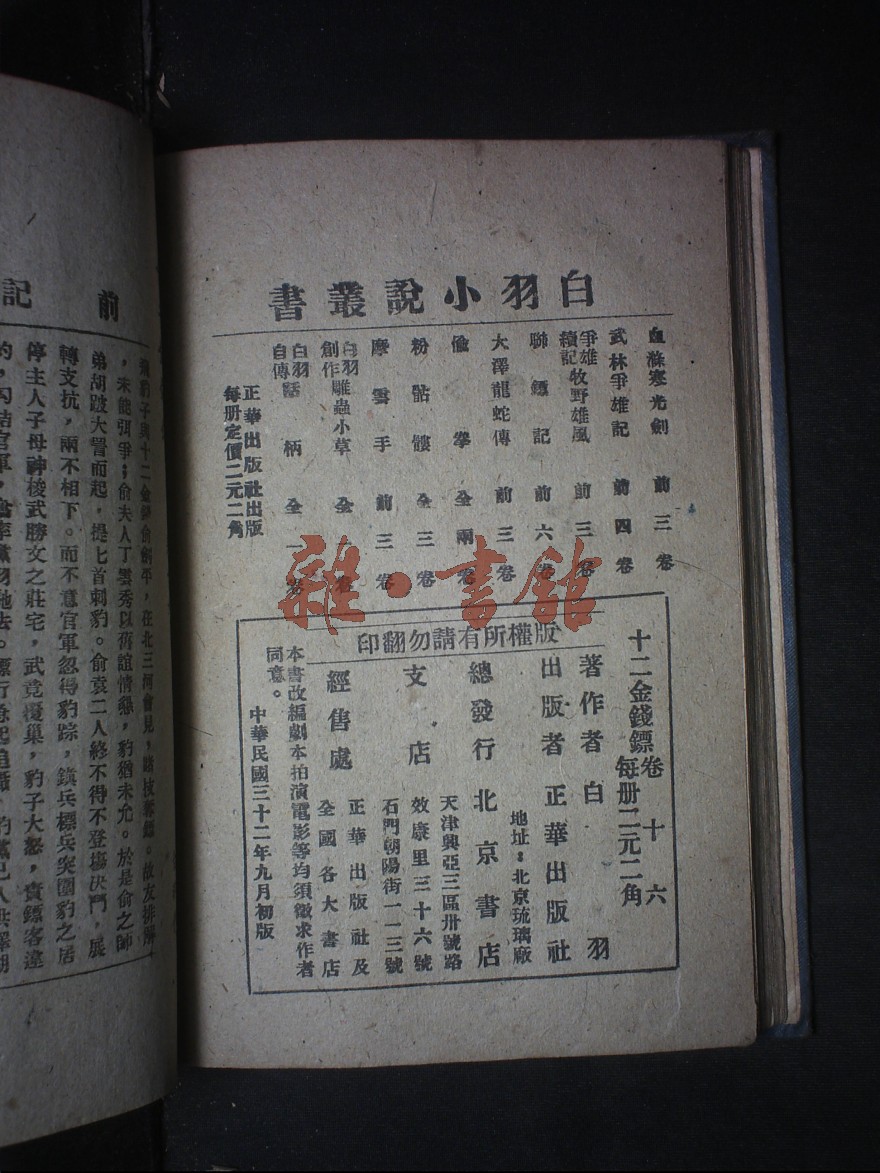 白羽小說叢書
血滌寒光劍 前三卷
武林爭雄記 前四卷
爭雄續記牧野雄風 前三卷
聯鏢記 前六卷
大澤龍蛇傳 前三卷
偷拳 全兩卷
粉骷髏 全三卷
摩雲手 前三卷
白羽創作雕蟲小草 全卷
白羽自傳話柄 全一卷
正華出版社出版
每册定價二元二角
十二金錢鏢卷十六
每册二元二角
版權所有請勿翻印
著作者 白羽
出版者 正華出版社
地址：北京琉璃廠
總發行 北京書店
天津興亞三區卅號路
支店 效康里三十六號
石門朝陽街一一三號
經售處 正華出版社及
全國各大書店
本書改編劇本拍演電影等均須徵求作者
同意。
中華民國三十二年九月初版
雜·書館
前記
飛豹子與十二金錢俞劍平，在北三河會見，
，未能弭爭；俞夫人丁雲秀以舊誼情懇，豹猶未允。於是俞之師
弟胡跛大詈而起，提匕首刺豹。俞袁二人終不得不登塲決鬥，展
轉支抗，兩不相下。而不意官軍忽得豹踪，鎮兵標兵突圍豹之居
停主人子母神梭武勝文之莊宅，武竟覆巢，豹子大怒，責鏢客違
約，勾結官軍，